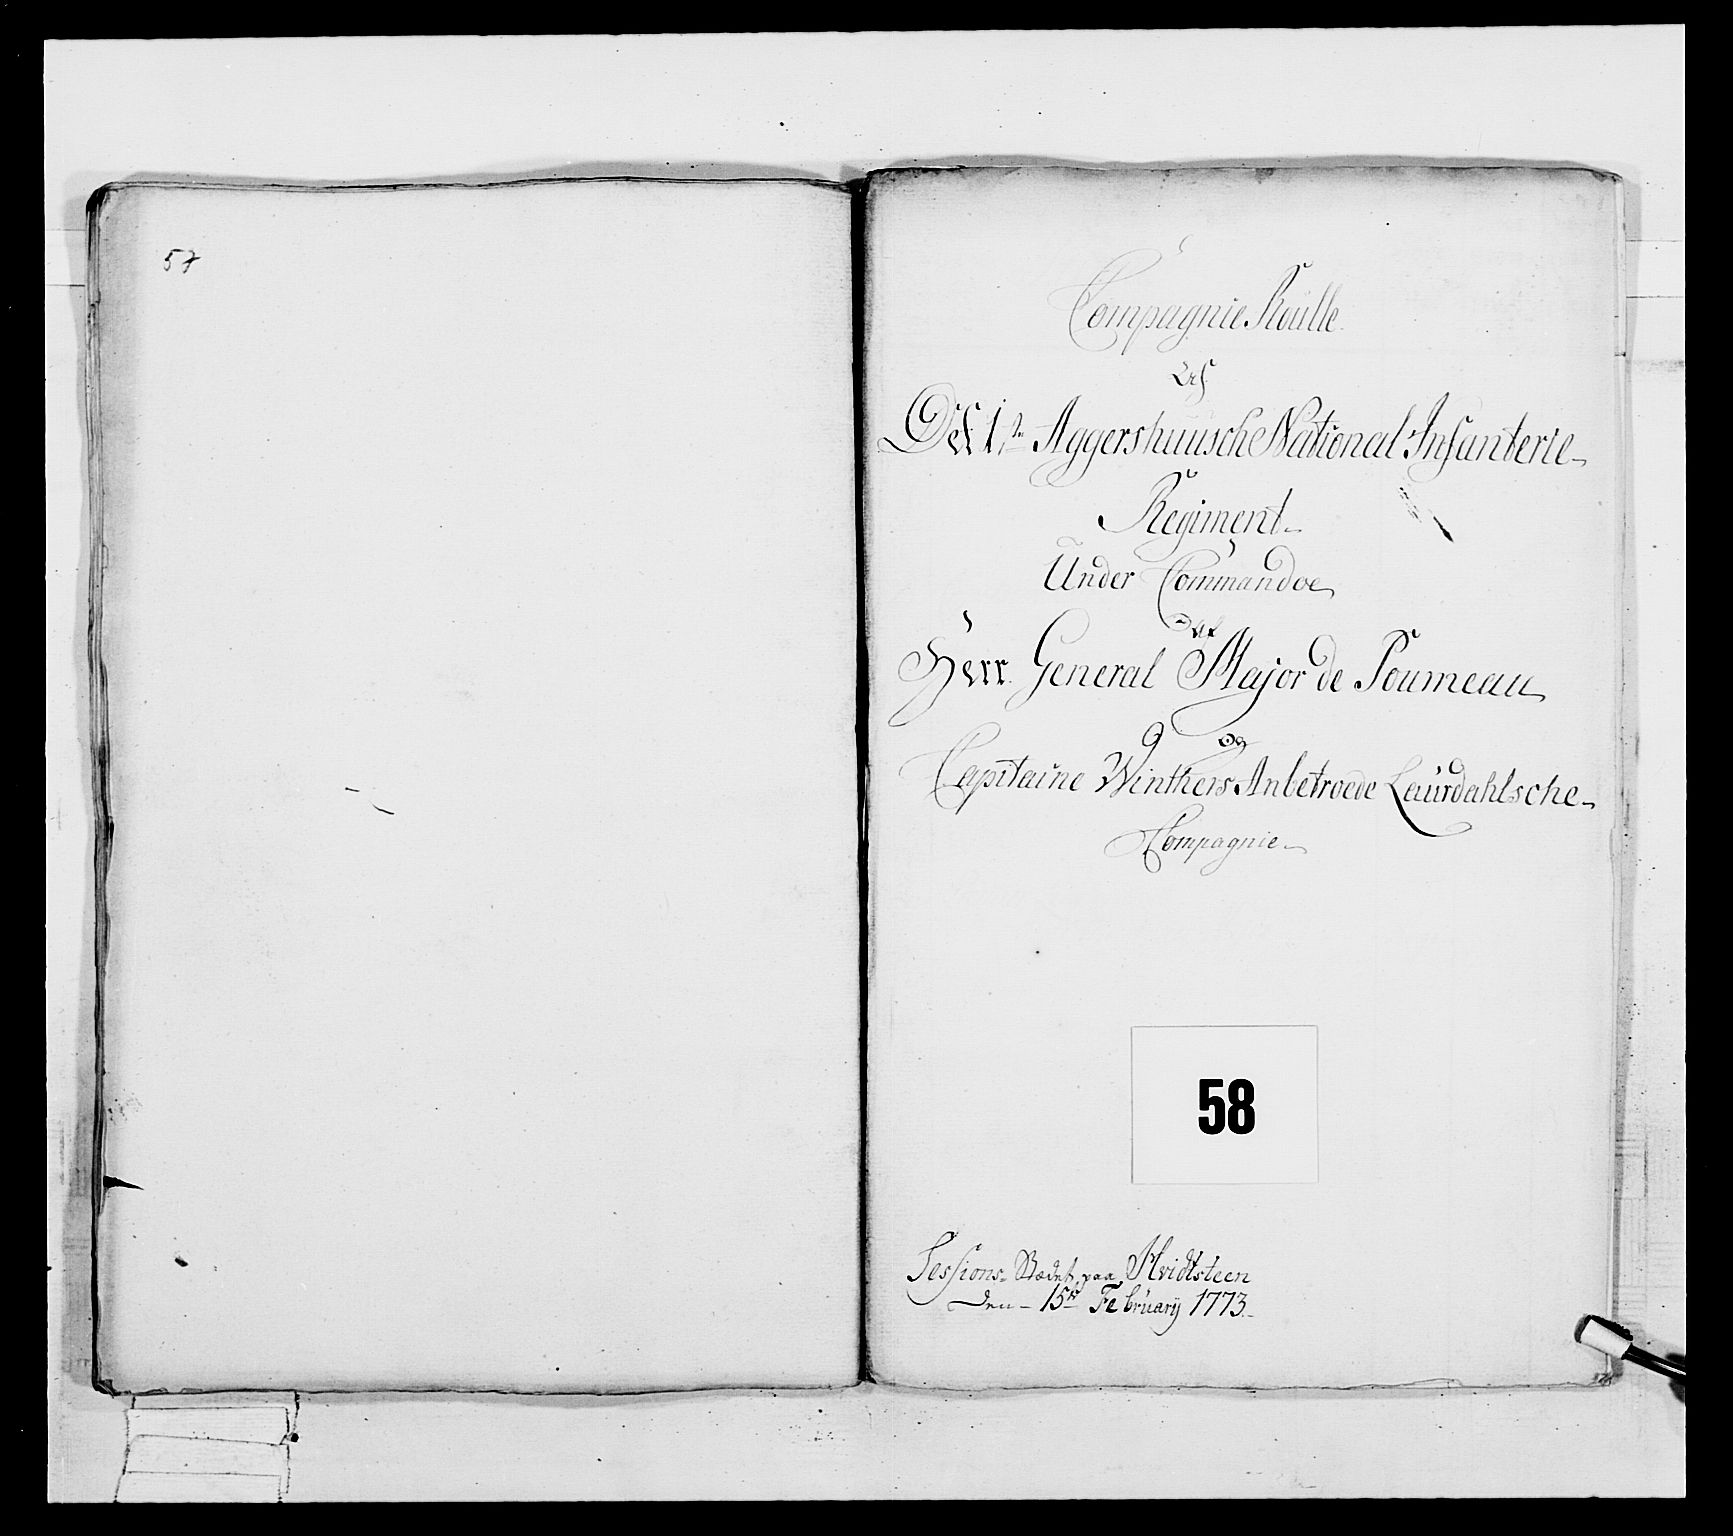 57
Compagnie Roulle
Ved
Det 1ste Aggershuusche National Infanterie-
Regiment
Under Commandoe
af
Herr General Major de Poumeau
og
Capitaine Winthers Anbetroede Laurdahlsche
Compagnie
58
Sessions-Stædet paa Hvidtsteen
Den 15de February 1773